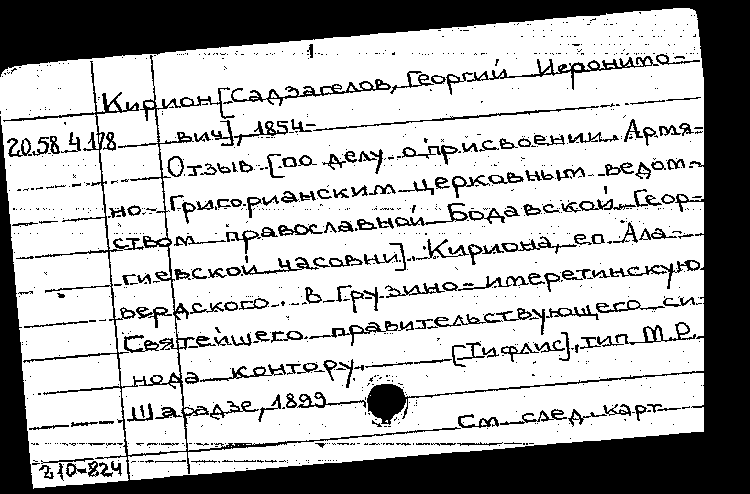 1
Кирион [Садзагелов, Георгий Иеронимо-
20.58.4.178 вич], 1854-
Отзыв [по делу о присвоении Армя-
но-Григорианским церковным ведом-
ством православной Бодавской Геор-
гиевской часовни]. Кириона, еп. Ала-
вердского. в Грузино-имеретинскую
Святейшего правительствующего си-
нода контору. [Тифлис], тип. М.Д.
Шарадзе, 1899
См. след. карт.
210-824